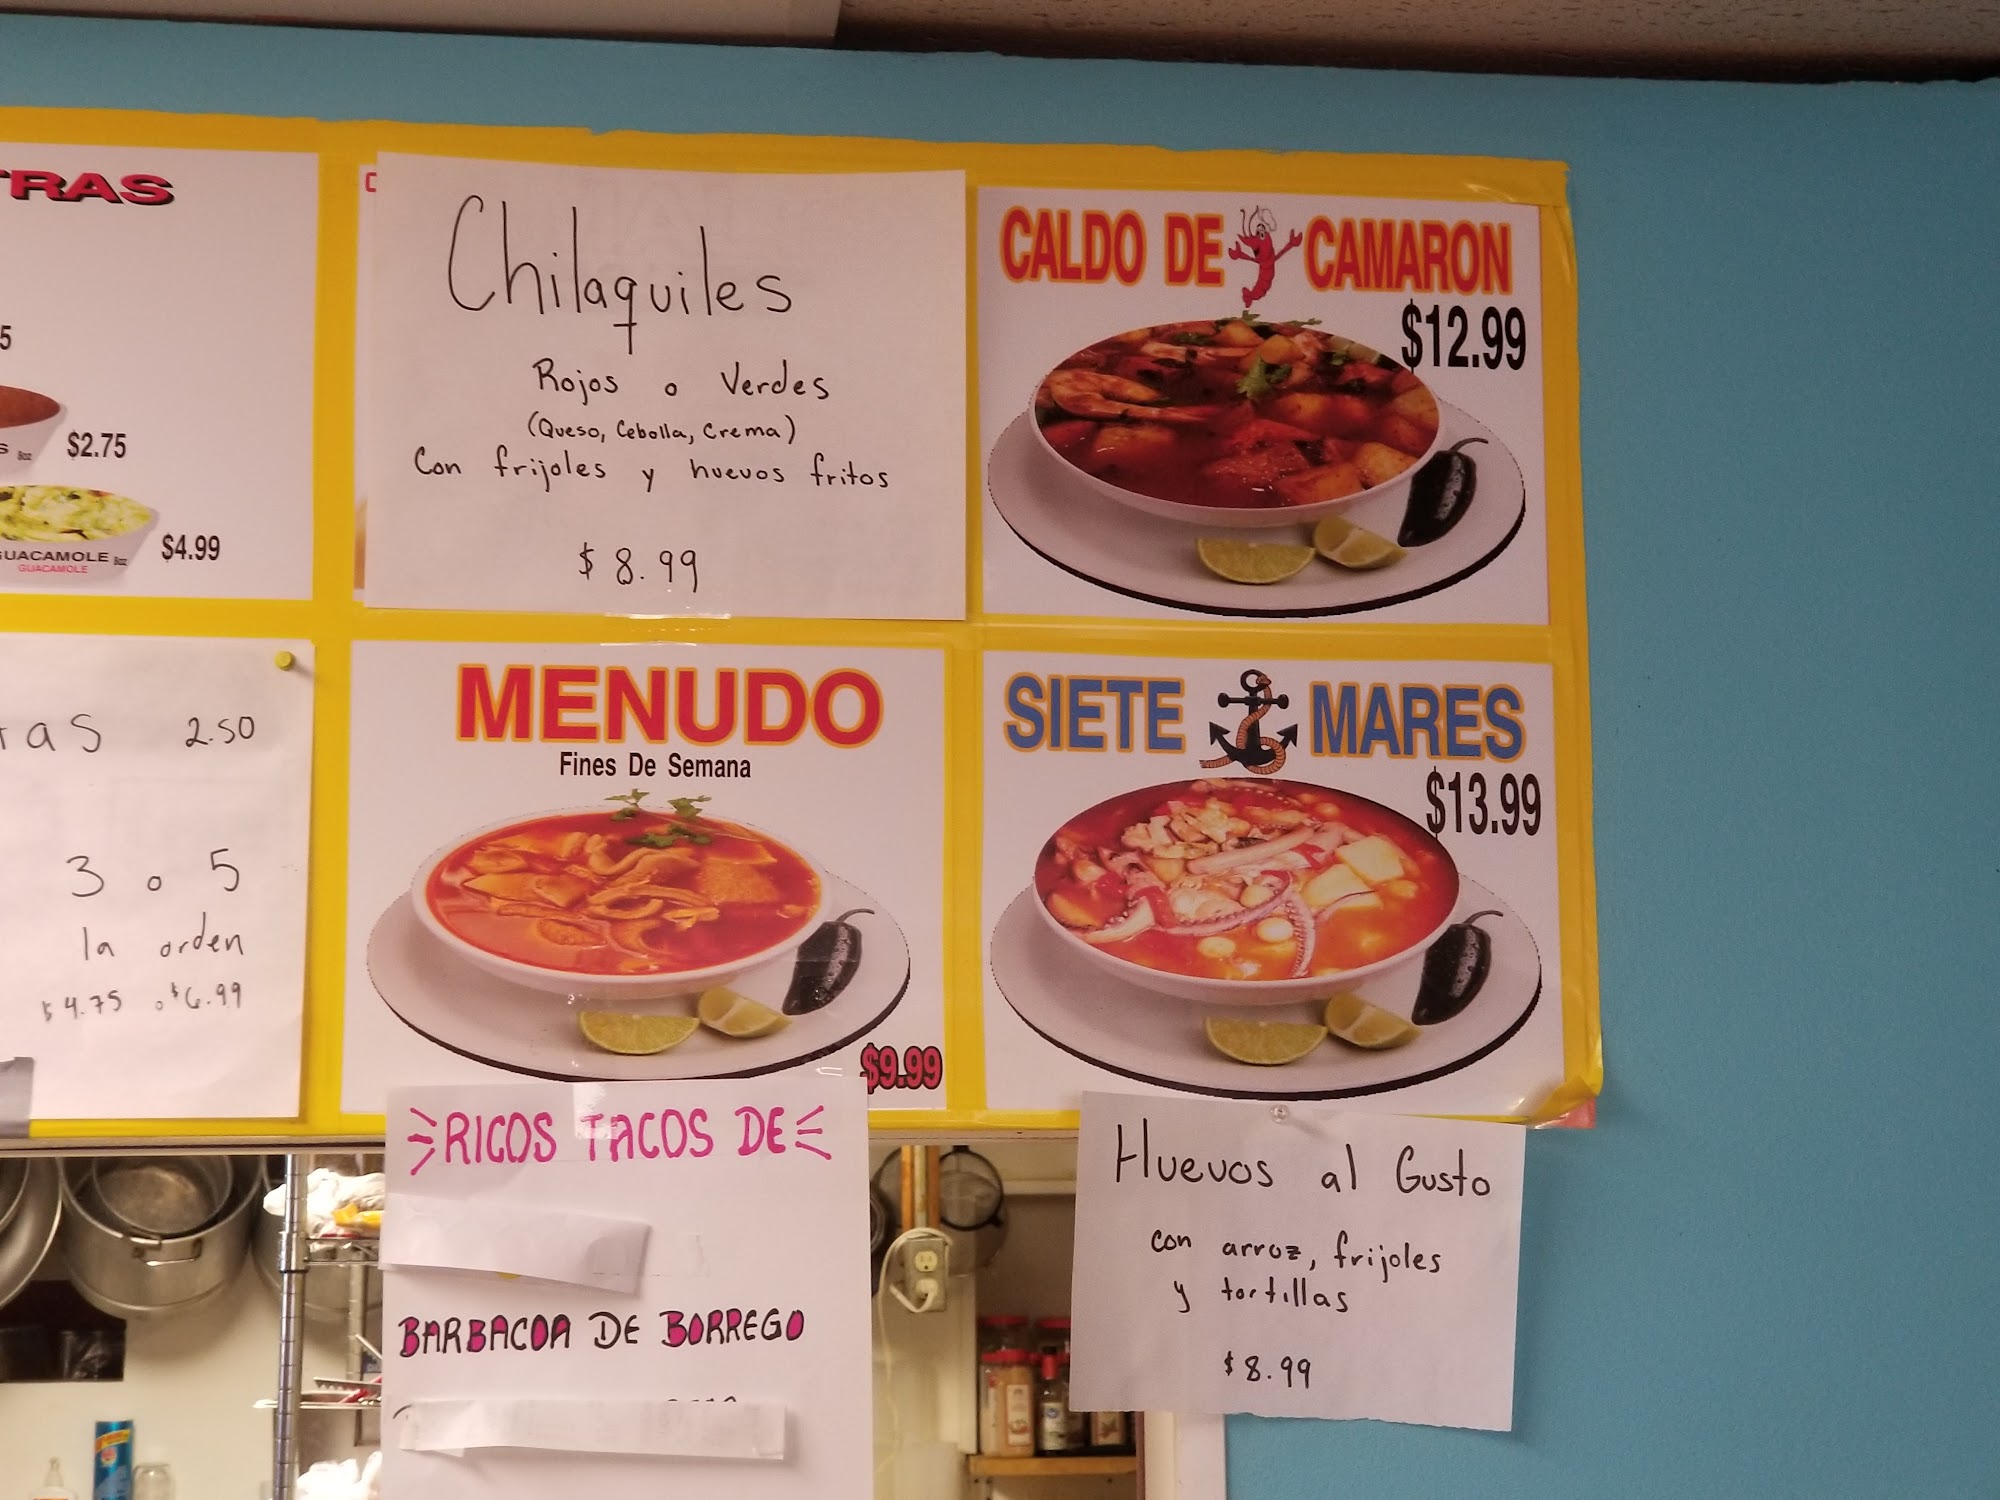 TRAS
$2.75
8oz
$4.99
GUACAMOLE 8oz
GUACAMOLE
2.50
3 o 5
la orden
$4.75 o $6.99
Chilaquiles
Rojos o Verdes
(Queso, Cebolla, Crema)
Con frijoles y huevos fritos
$8.99
CALDO DE CAMARON
$12.99
MENUDO
Fines De Semana
$9.99
SIETE MARES
$13.99
RICOS TACOS DE
BARBACOA DE BORREGO
Huevos al Gusto
con arroz, frijoles
y tortillas
$8.99